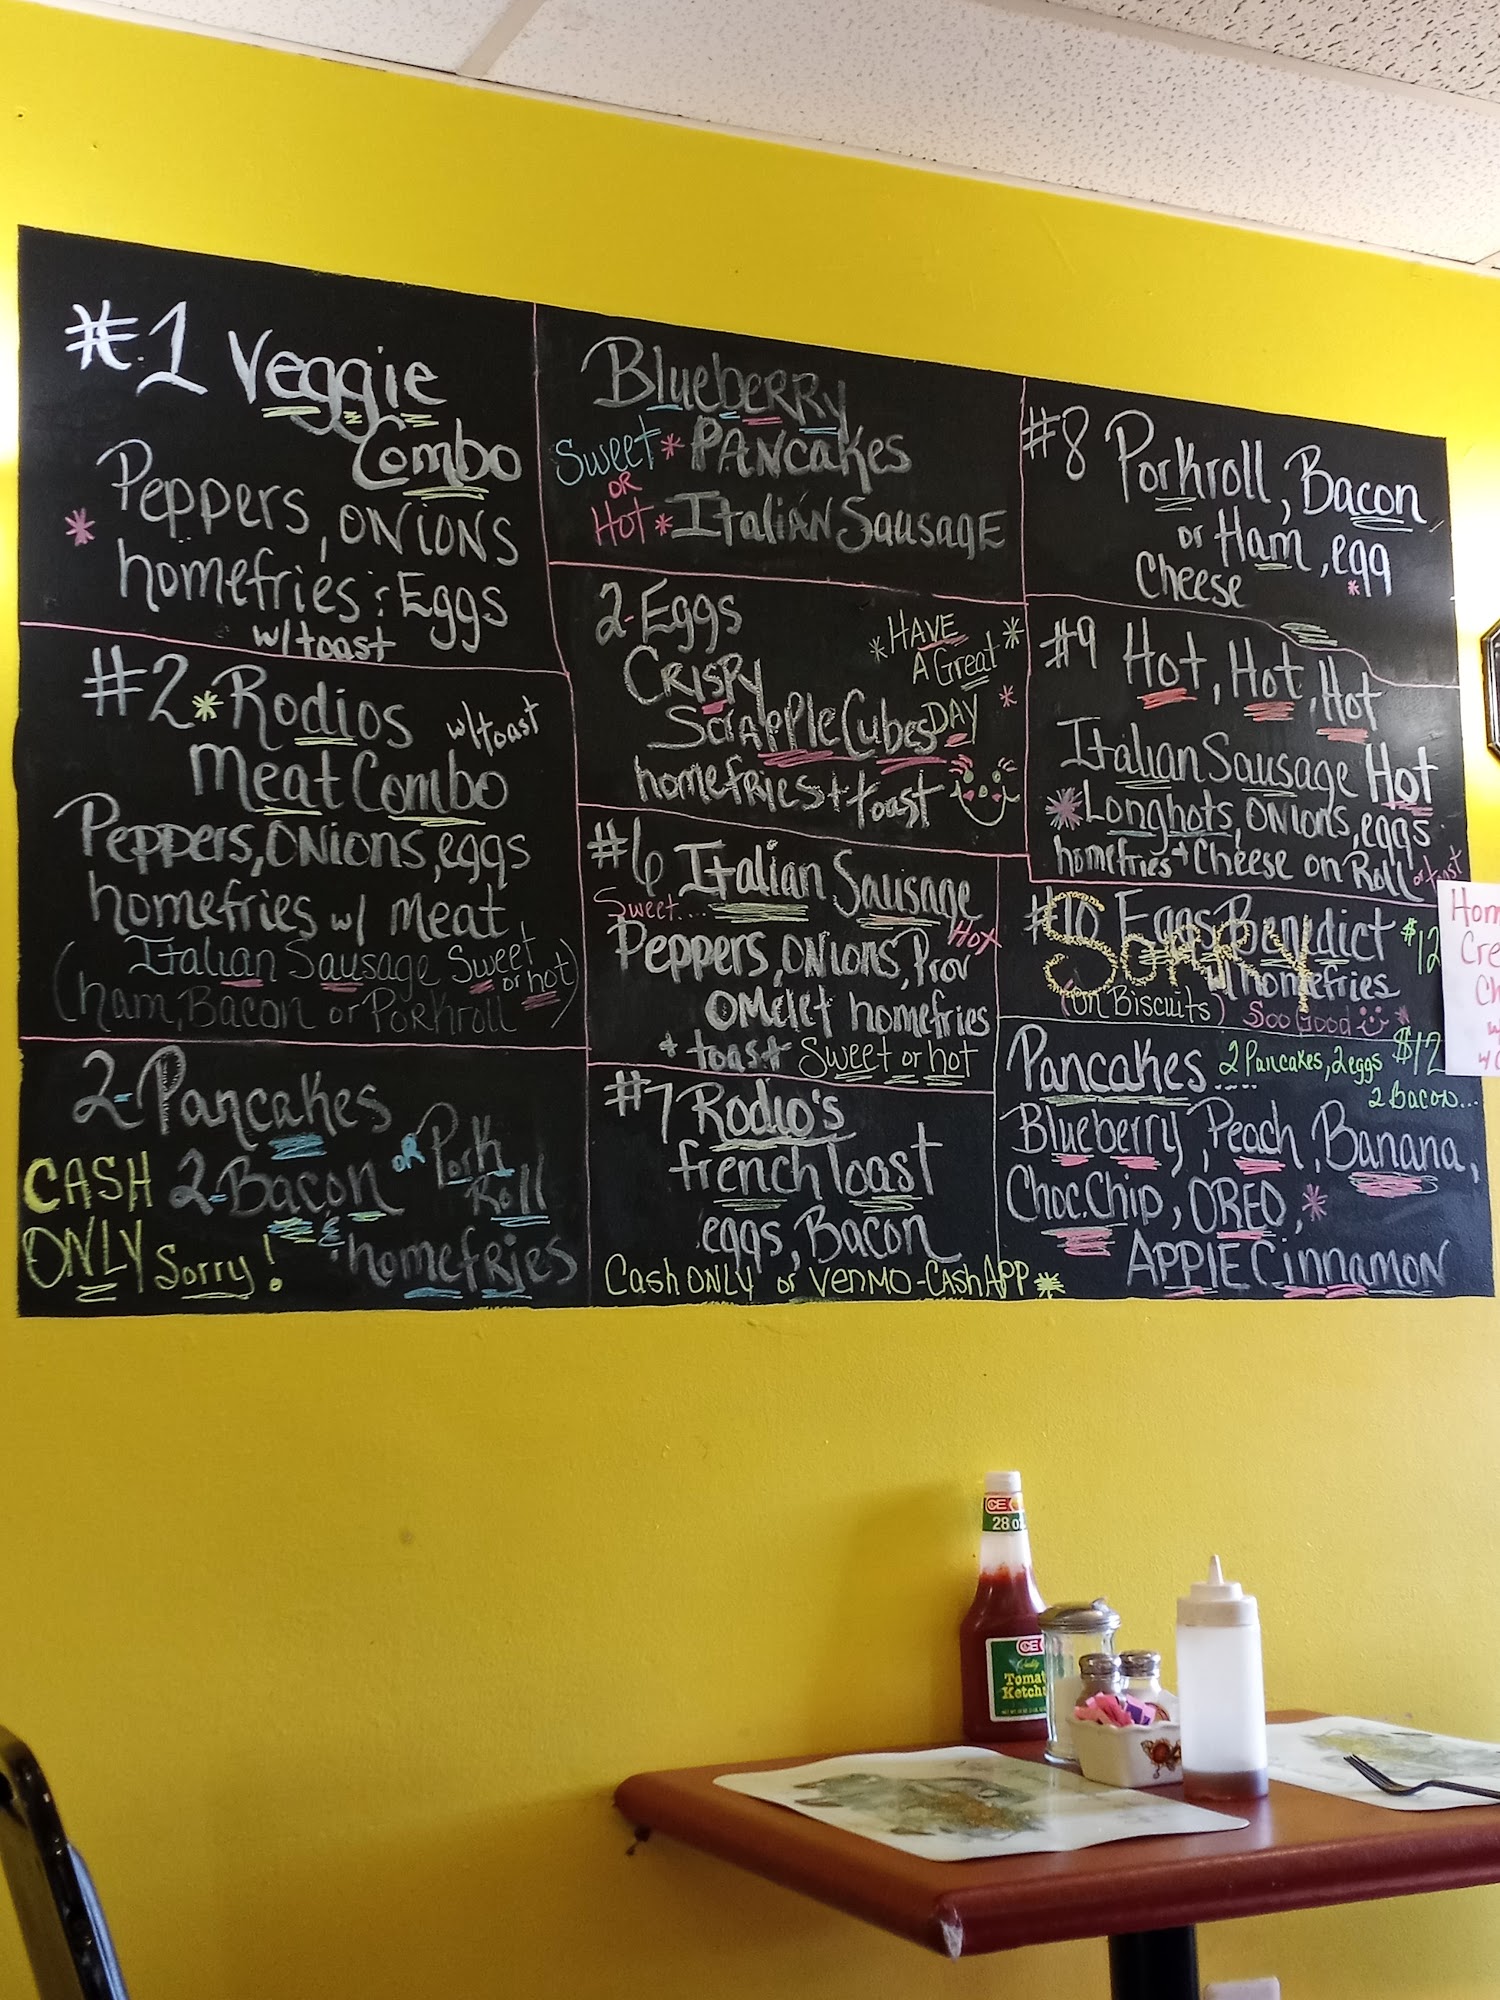 #1 Veggie
Combo
* Peppers, ONIONS
homefries : Eggs
w/toast
#2 * Rodios
w/toast
Meat Combo
Peppers, ONIONS, eggs
homefries w/ meat
(Italian Sausage Sweet or hot)
(ham, Bacon or Porkroll)
2-Pancakes
2-Bacon OR Pork Roll
& homefries
CASH
ONLY Sorry!
Blueberry
Sweet * PANcakes
OR
Hot * Italian Sausage
2-Eggs
Crispy
Scrapple Cubes
homefries + toast
* HAVE *
A Great
DAY *
#6 Italian Sausage
Sweet.... Hot
Peppers, ONIONS, Prov
OMelet homefries
+ toast Sweet or hot
#7 Rodio's
french Toast
eggs, Bacon
Cash ONLY or VENMO - Cash APP *
#8 Porkroll, Bacon
or Ham, egg
Cheese *
#9 Hot, Hot, Hot
Italian Sausage Hot
* Longhots, ONIONS, eggs
homefries + Cheese on Roll or toast
#10 Eggs Benedict $12
SORRY
w/homefries
(on Biscuits) Soo Good *
Pancakes .... 2 Pancakes, 2eggs $12
2 Bacon...
Blueberry, Peach, Banana,
Choc.Chip, OREO, *
APPlE Cinnamon
Hom
Cre
Ch
w
CE
28 oz
CE
Quality
Tomat
Ketchu